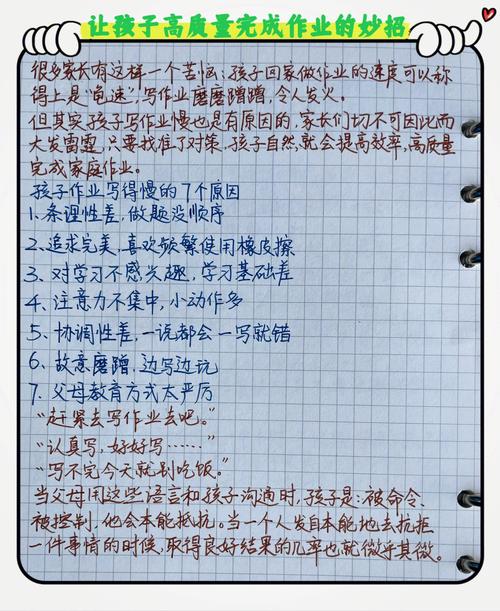 让孩子高质量完成作业的妙招
很多家长有这样一个苦恼:孩子回家做作业的速度可以称
得上是“龟速”,写作业磨磨蹭蹭,令人发火。
但其实孩子写作业慢也是有原因的,家长们切不可因此而
大发雷霆,只要找准了对策,孩子自然就会提高效率,高质量
完成家庭作业。
孩子作业写得慢的7个原因
1、条理性差,做题没顺序
2、追求完美,喜欢频繁使用橡皮擦
3、对学习不感兴趣,学习基础差
4、注意力不集中,小动作多
5、协调性差,一说都会一写就错
6、故意磨蹭,边写边玩
7、父母教育方式太严厉
“赶紧去写作业去吧。”
“认真写,好好写……”
“写不完今天就别吃饭。”
当父母用这些语言和孩子沟通时,孩子是:被命令、
被控制,他会本能抵抗。当一个人发自本能地去抗拒
一件事情的时候,取得良好结果的几率也就微乎其微。